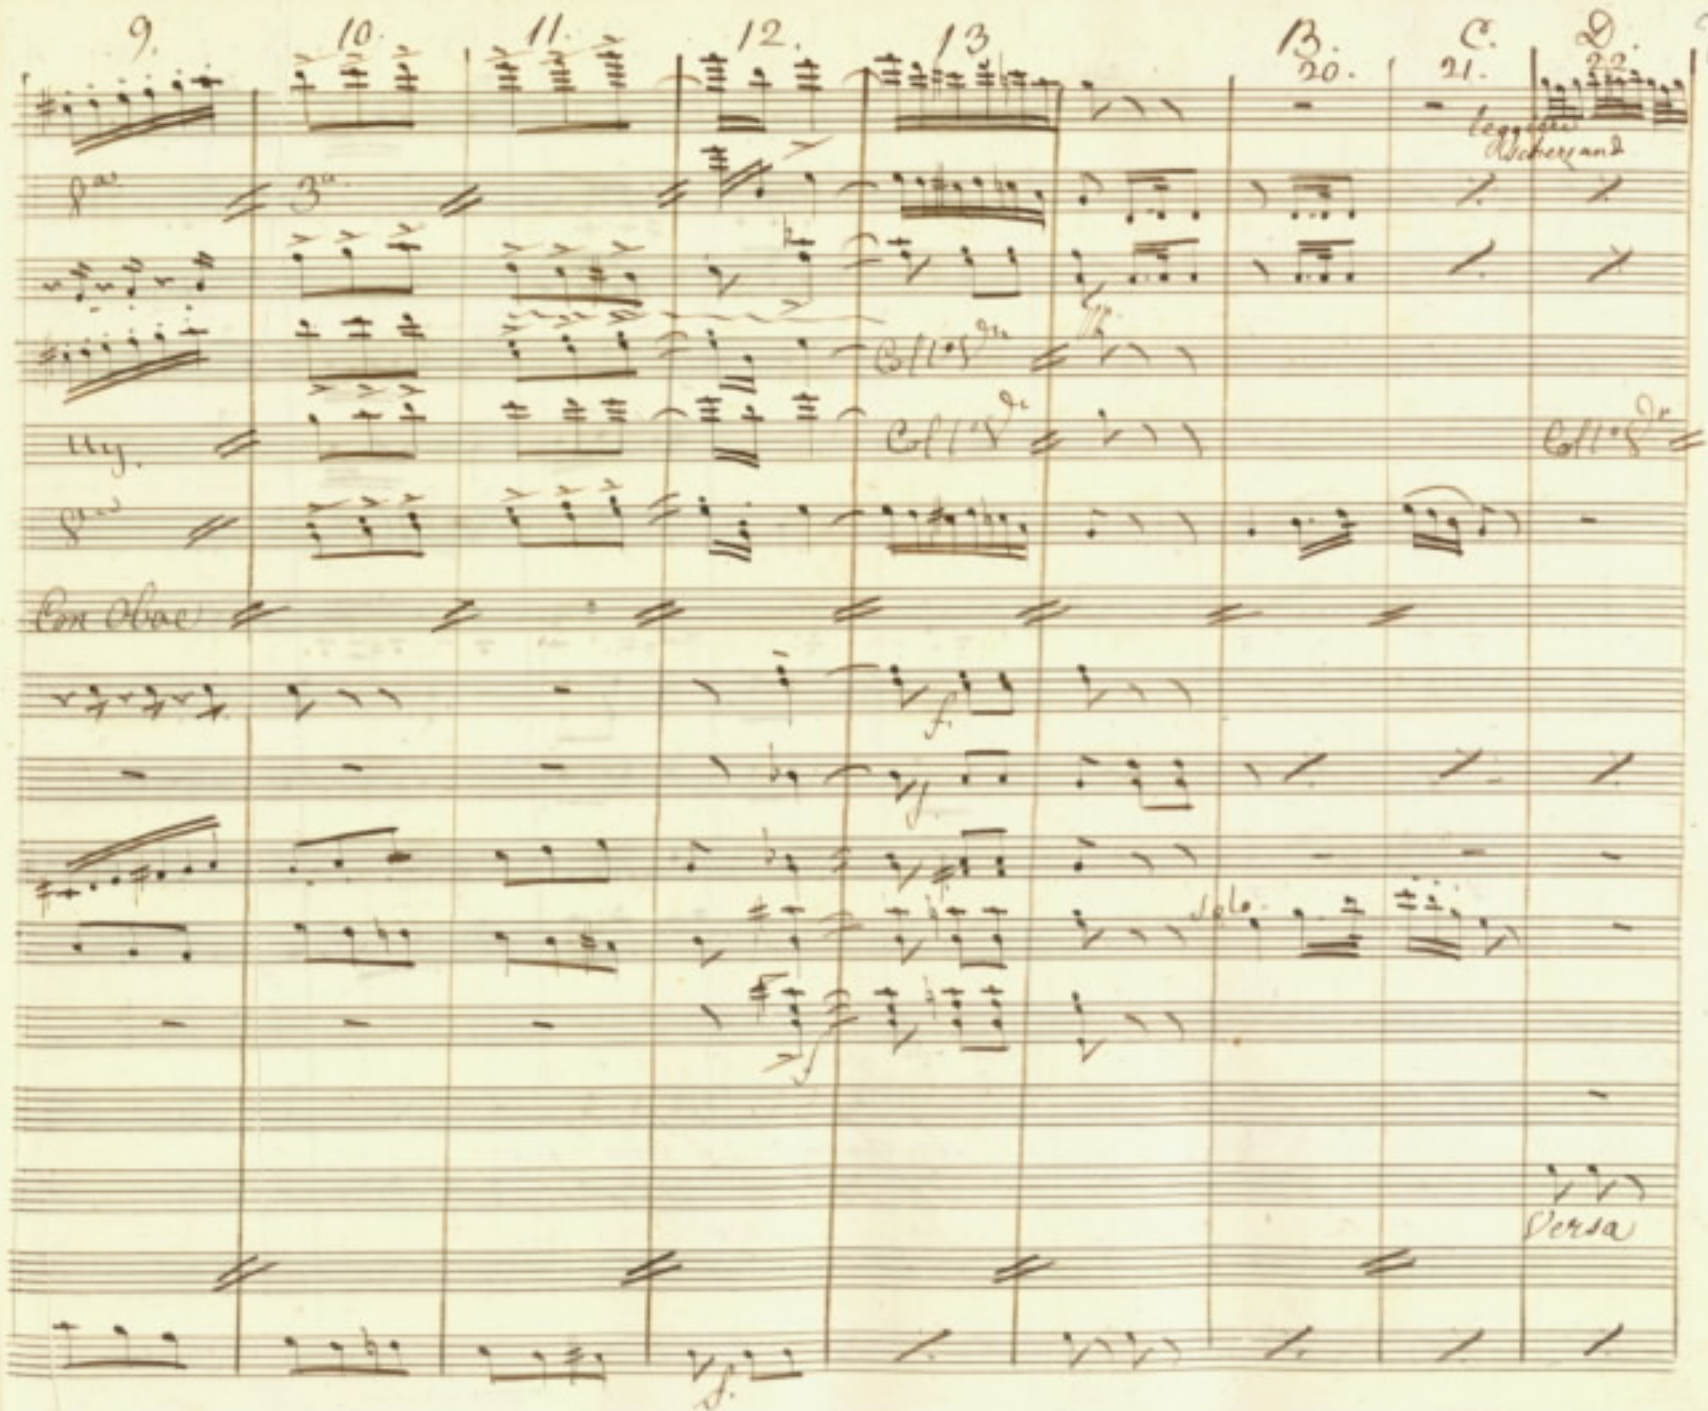 9. 10. 11. 12. 13 B. C. D.
20. 21. 22
leggiero
Scherzand
8va 3a
Coll'o V
Uy. Coll'o V Coll'o V
8va
Con Oboe
f.
f
Solo.
f
Versa
f.